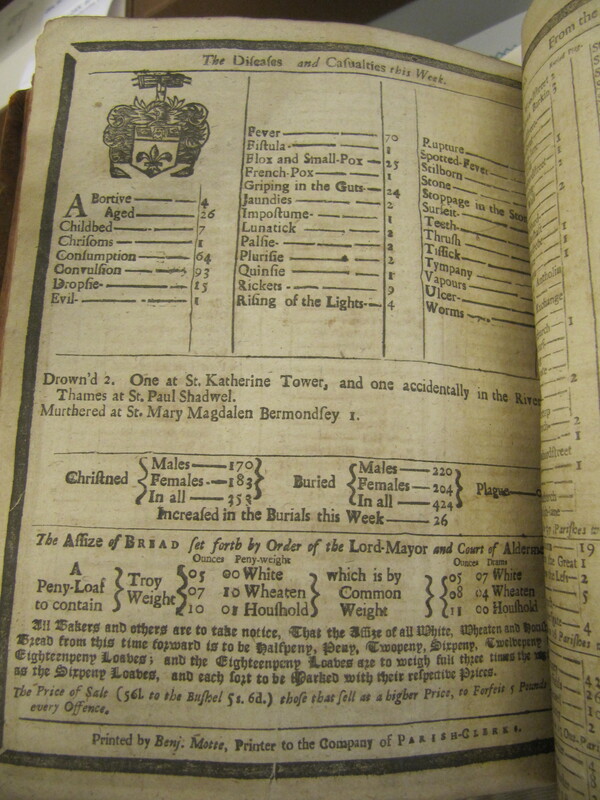 The Diſeaſes and Caſualties this Week.
Abortive 4
Aged 26
Childbed 7
Chriſoms 1
Conſumption 64
Convulſion 93
Dropſie 15
Evil 1
Fever 70
Fiſtula 1
Flox and Small-Pox 25
French-Pox 1
Griping in the Guts 24
Jaundies 2
Impoſtume 1
Lunatick 1
Palſie 2
Pluriſie 2
Quinſie 1
Rickets 9
Riſing of the Lights 4
Rupture
Spotted-Fever
Stilborn
Stone
Stoppage in the
Surfeit
Teeth
Thruſh
Tiſſick
Tympany
Vapours
Ulcer
Worms
Drown'd 2. One at St. Katherine Tower, and one accidentally in the River
Thames at St. Paul Shadwel.
Murthered at St. Mary Magdalen Bermondſey 1.
Chriſtned Males 170 Females 183 In all 353
Buried Males 220 Females 204 In all 424
Plague
Increaſed in the Burials this Week 26
The Aſſize of BREAD ſet forth by Order of the Lord-Mayor and Court of
Ounces Peny-weight Ounces Drams
A Peny-Loaf to contain Troy Weight 05 00 White 07 10 Wheaten 10 01 Houſhold
which is by Common Weight 05 07 White 08 04 Wheaten 11 00 Houſhold
All Bakers and others are to take notice, That the Aſſize of all White, Wheaten and
Bread from this time forward is to be Halfpeny, Peny, Twopeny, Sixpeny,
Eighteenpeny Loaves; and the Eighteenpeny Loaves are to weigh full three times the
as the Sixpeny Loaves, and each ſort to be Marked with their reſpective Prices.
The Price of Salt (56l. to the Buſhel 5s. 6d.) thoſe that ſell at a higher Price, to Forfeit 5 Pounds
every Offence.
Printed by Benj. Motte, Printer to the Company of PARISH-CLERKS.
From the